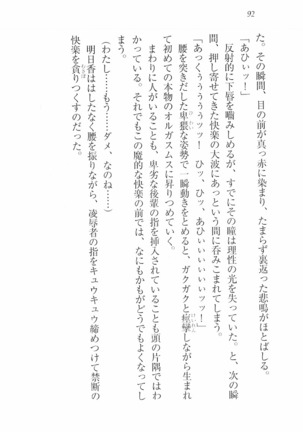 92
た。その瞬間、目の前が真っ赤に染まり、たまらず裏返った悲鳴がほとばしる。
「あひぃッ！」
反射的に下唇を噛みしめるが、すでにその瞳は理性の光を失っていた。と、次の瞬
間、押し寄せてきた快楽の大波にあっという間に呑みこまれてしまう。
「あっくぅぅぅぅぅッッ！　ひッ、ひッ、あひぃぃぃぃぃぃッッ！」
腰を突きだした卑猥な姿勢で一瞬動きをとめると、ガクガクと痙攣しながら生まれ
て初めての本物のオルガスムスに昇りつめていく。
まわりに人がいることも、卑劣な後輩の指を挿入されていることも頭の片隅ではわ
かっている。それでもこの魔的な快楽の前では、なにもかもがどうでもよくなってし
まう。
（わたし……もう……ダメ、なのね……）
明日香ははしたなく腰を振りながら、凌辱者の指をキュウキュウ締めつけて禁断の
快楽を貪りつくすのだった。